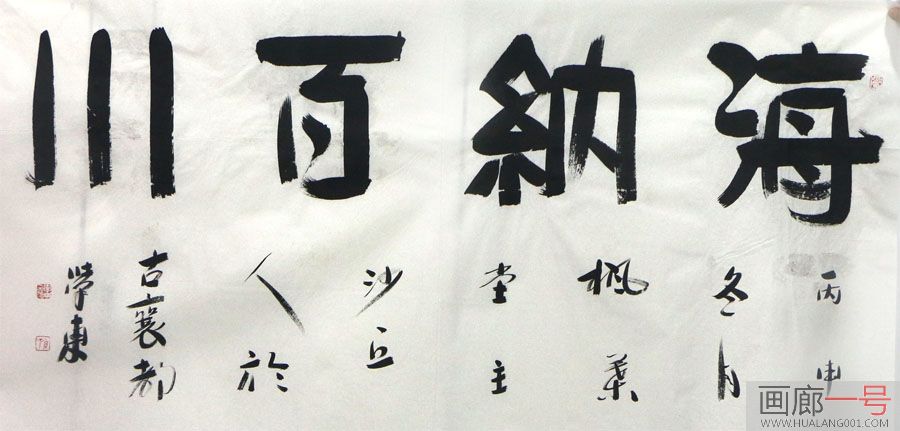 海納百川
丙申
冬月
枫葉
堂主
沙丘
人於
古襄都
学東
画廊一号
WWW.HUALANG001.COM